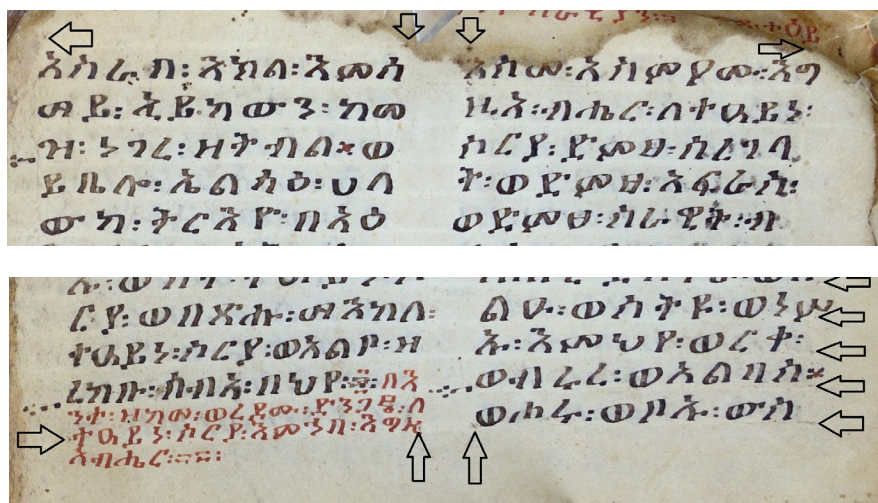 አስራበ፡ እክለ፡ እመሰ
ማይ፡ ኢይከውን፡ ከመ
ዝ፡ ነገረ፡ ዘትብል፡ ወ
ይቤሎ፡ ኤልሳዕ፡ ሀለ
ውከ፡ ትርእዮ፡ በአዕ
እስመ፡ አስምዖሙ፡ እግ
ዚአ፡ ብሔር፡ ለተዐይነ፡
ሶርያ፡ ድምፀ፡ ሰረገላ
ት፡ ወድምፀ፡ አፍራስ፡
ወድምፀ፡ ሰራዊት፡ ብ
ርያ፡ ወበጽሑ፡ ማእከለ፡
ተዐይነ፡ ሶርያ፡ ወአልቦ፡ ዘ
ረከቡ፡ ሰብአ፡ በህየ፡ ። በእ
ንተ፡ ዘከመ፡ ወረደሙ፡ ድንጋፄ፡ ለ
ተዐይነ፡ ሶርያ፡ እምኀበ፡ እግዚ
አብሔር፡ ።
ልዑ፡ ወሰትዩ፡ ወነሥ
ኡ፡ እምህየ፡ ወርቀ፡
ወብሩረ፡ ወአልባሰ፡
ወሖሩ፡ ወቦኡ፡ ውስ